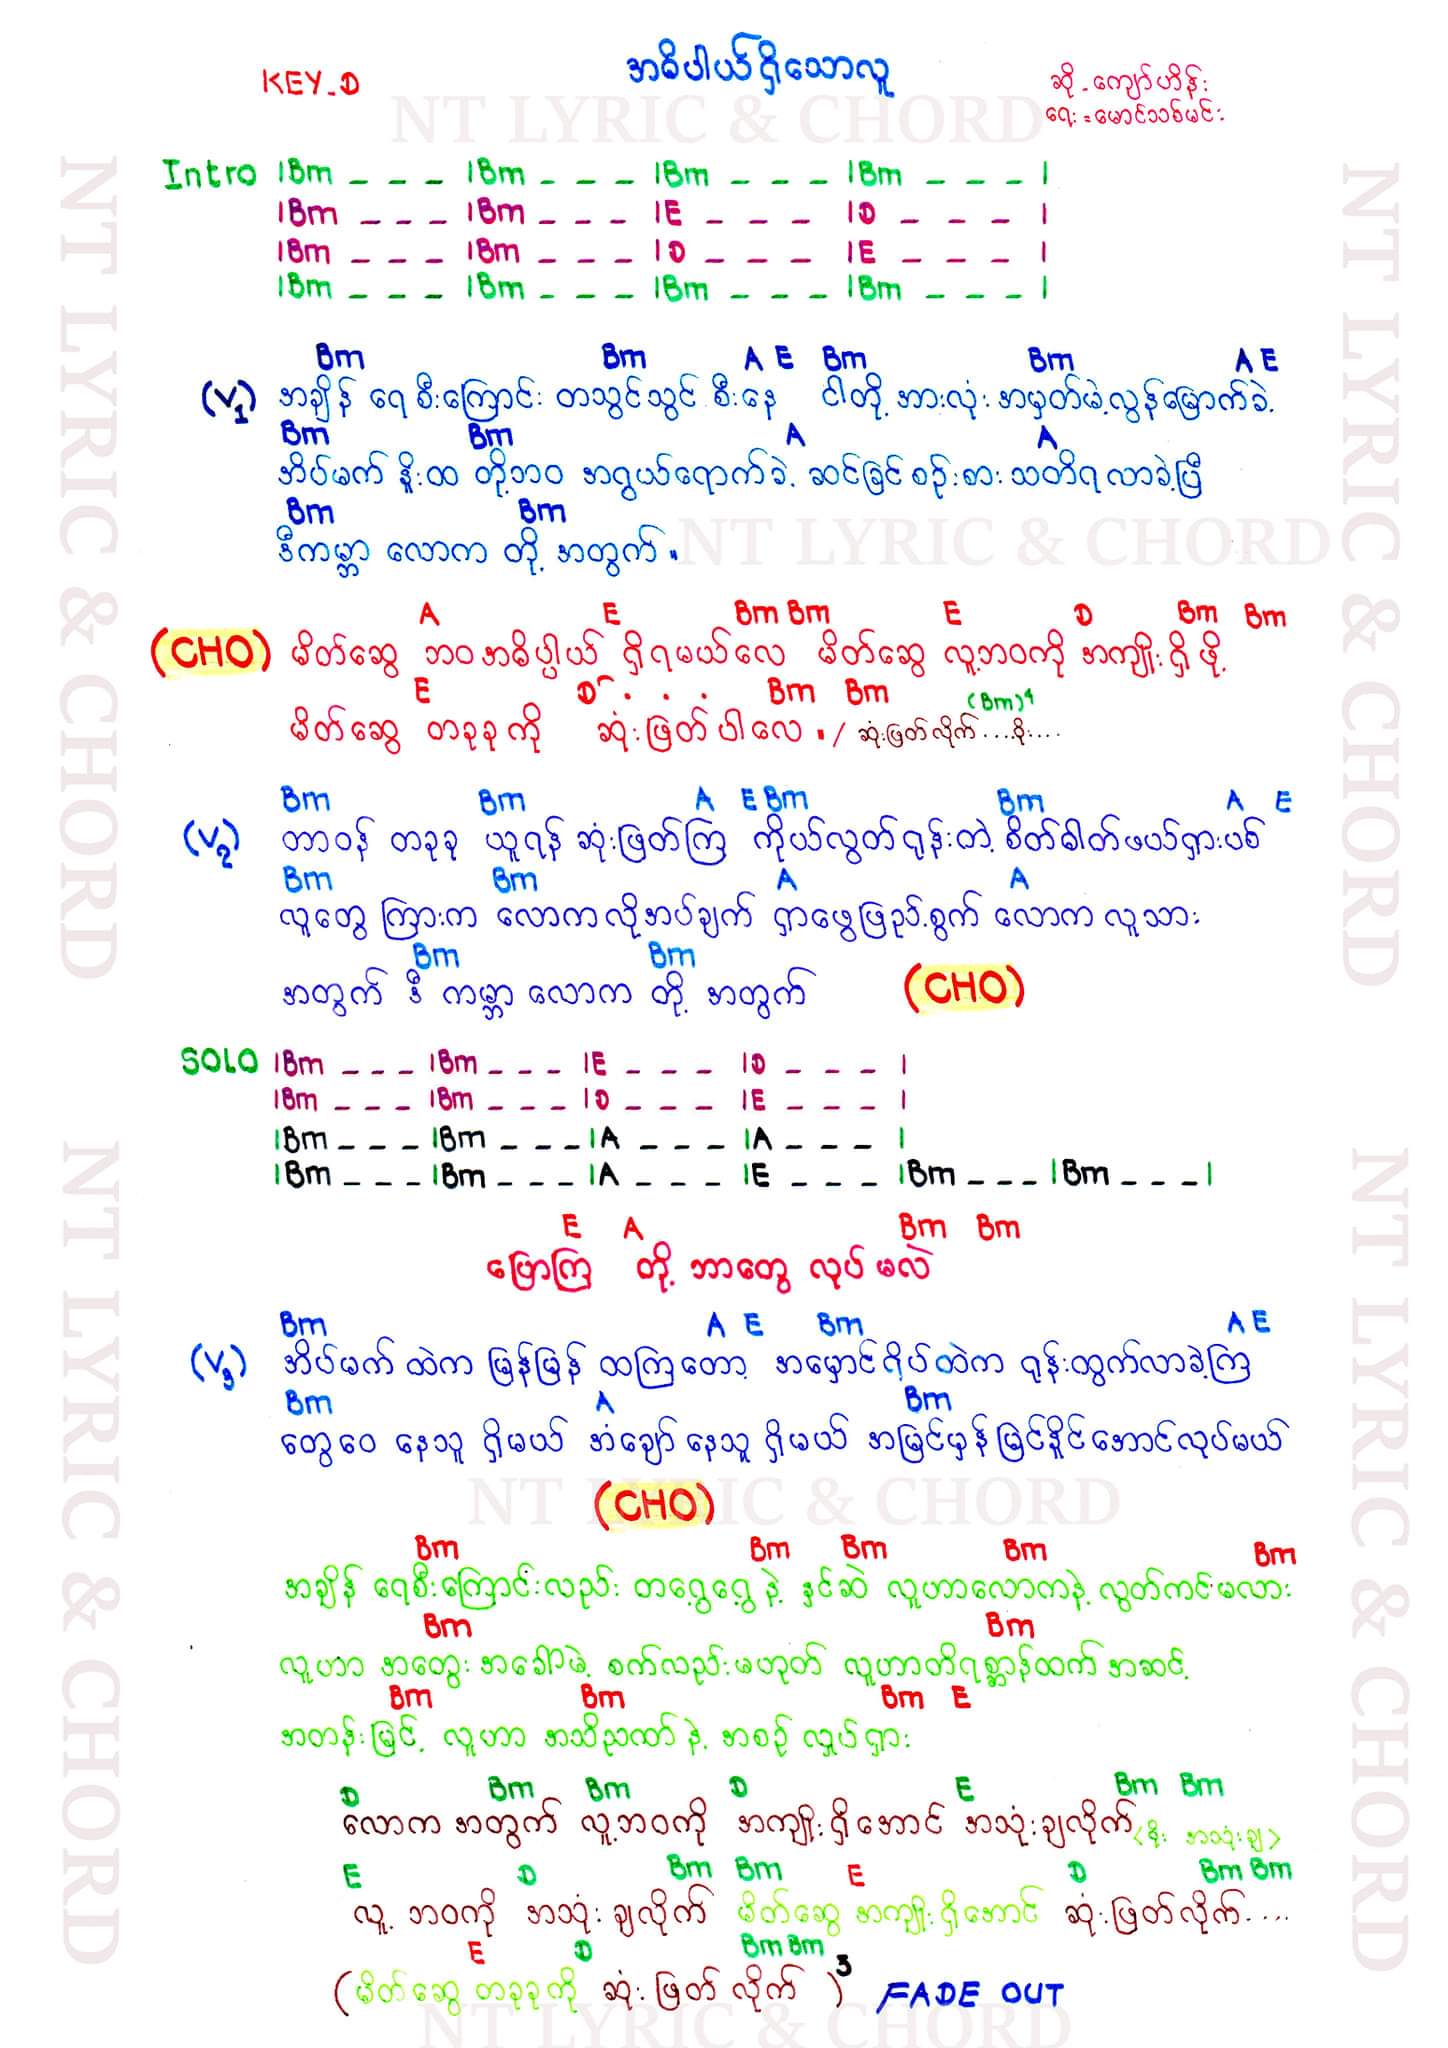 အဓိပါယ်ရှိသောလူ
KEY-D
ဆို - ကျော်ဟိန်း
ရေး = မောင်သစ်မင်း
NT LYRIC & CHORD
Intro |Bm _ _ _ |Bm _ _ _ |Bm _ _ _ |Bm _ _ _ |
|Bm _ _ _ |Bm _ _ _ |E _ _ _ |D _ _ _ |
|Bm _ _ _ |Bm _ _ _ |D _ _ _ |E _ _ _ |
|Bm _ _ _ |Bm _ _ _ |Bm _ _ _ |Bm _ _ _ |
Bm Bm A E Bm Bm A E
(V1) အချိန် ရေစီးကြောင်း တသွင်သွင် စီးနေ ငါတို့ အားလုံး အမှတ်မဲ့လွန်မြောက်ခဲ့
Bm Bm A A
အိပ်မက် နိုးထ တို့ဘဝ အရွယ်ရောက်ခဲ့ ဆင်ခြင်စဉ်းစား သတိရလာခဲ့ပြီ
Bm Bm
ဒီကမ္ဘာ လောက တို့ အတွက်။
NT LYRIC & CHORD
A E Bm Bm E D Bm Bm
(CHO) မိတ်ဆွေ ဘဝအဓိပ္ပါယ် ရှိရမယ်လေ မိတ်ဆွေ လူ့ဘဝကို အကျိုးရှိဖို့
E D . . . Bm Bm (Bm)4
မိတ်ဆွေ တခုခုကို ဆုံးဖြတ်ပါလေ။ / ဆုံးဖြတ်လိုက် ....စိုး....
Bm Bm A E Bm Bm A E
(V2) တာဝန် တခုခု ယူရန် ဆုံးဖြတ်ကြ ကိုယ်လွတ်ရုန်းတဲ့ စိတ်ဓါတ်ဖယ်ရှားပစ်
Bm Bm A A
လူတွေ ကြားက လောကလိုအပ်ချက် ရှာဖွေဖြည့်စွက် လောက လူသား
Bm Bm
အတွက် ဒီ ကမ္ဘာ လောက တို့ အတွက် (CHO)
SOLO |Bm _ _ _ |Bm _ _ _ |E _ _ _ |D _ _ _ |
|Bm _ _ _ |Bm _ _ _ |D _ _ _ |E _ _ _ |
|Bm _ _ _ |Bm _ _ _ |A _ _ _ |A _ _ _ |
|Bm _ _ _ |Bm _ _ _ |A _ _ _ |E _ _ _ |Bm _ _ _ |Bm _ _ _ |
E A Bm Bm
ပြောကြ တို့ ဘာတွေ လုပ်မလဲ
Bm A E Bm A E
(V3) အိပ်မက် ထဲက မြန်မြန် ထကြတော့ အမှောင်ရိပ်ထဲက ရုန်းထွက်လာခဲ့ကြ
Bm A Bm
တွေဝေ နေသူ ရှိမယ် အံချော်နေသူ ရှိမယ် အမြင်မှန်မြင်နိုင်အောင်လုပ်မယ်
(CHO)
NT LYRIC & CHORD
Bm Bm Bm Bm Bm
အချိန် ရေစီးကြောင်းလည်း တရွေ့ရွေ့နဲ့ နှင်ဆဲ လူဟာလောကနဲ့ လွတ်ကင်းမလား
Bm Bm
လူဟာ အတွေးအခေါ်မဲ့ စက်လည်းမဟုတ် လူဟာတိရစ္ဆာန်ထက် အဆင့်
Bm Bm Bm E
အတန်းမြင့် လူဟာ အသိညာဏ်နဲ့ အစဉ် လှုပ်ရှား
D Bm Bm D E Bm Bm
လောက အတွက် လူ့ဘဝကို အကျိုးရှိအောင် အသုံးချလိုက် <စိုး အသုံးချ>
E D Bm Bm E D Bm Bm
လူ့ ဘဝကို အသုံးချလိုက် မိတ်ဆွေ အကျိုးရှိအောင် ဆုံးဖြတ်လိုက်....
E D Bm Bm
(မိတ်ဆွေ တခုခုကို ဆုံးဖြတ်လိုက် )3 FADE OUT
NT LYRIC & CHORD
NT LYRIC & CHORD
NT LYRIC & CHORD
NT LYRIC & CHORD
NT LYRIC & CHORD